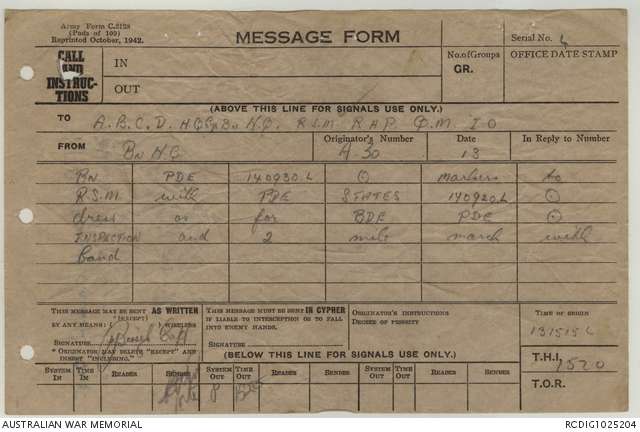 Army Form C.2128
(Pads of 100)
Reprinted October, 1942.
MESSAGE FORM
Serial No.
CALL
AND
INSTRUC-
TIONS
IN
OUT
No. of Groups
GR.
OFFICE DATE STAMP
(ABOVE THIS LINE FOR SIGNALS USE ONLY.)
TO A.B.C.D. HQ Coy Bn H.Q. R.S.M. R.A.P. Q.M. I.O
FROM Bn H.Q
Originator's Number
A 30
Date
13
In Reply to Number
Bn PDE 140930L O markers to
R.S.M. with PDE STATES 140920L O
dress as for BDE PDE O
INSPECTION and 2 mile march with
band
THIS MESSAGE MAY BE SENT AS WRITTEN
BY ANY MEANS. (EXCEPT) WIRELESS
SIGNATURE
* ORIGINATOR MAY DELETE "EXCEPT" AND
INSERT "INCLUDING."
THIS MESSAGE MUST BE SENT IN CYPHER
IF LIABLE TO INTERCEPTION OR TO FALL
INTO ENEMY HANDS.
SIGNATURE
ORIGINATOR'S INSTRUCTIONS
DEGREE OF PRIORITY
TIME OF ORIGIN
131515L
T.H.I. 1520
T.O.R.
(BELOW THIS LINE FOR SIGNALS USE ONLY.)
SYSTEM IN TIME IN READER SENDER SYSTEM OUT TIME OUT READER SENDER SYSTEM OUT TIME OUT READER SENDER
AUSTRALIAN WAR MEMORIAL
RCDIG1025204